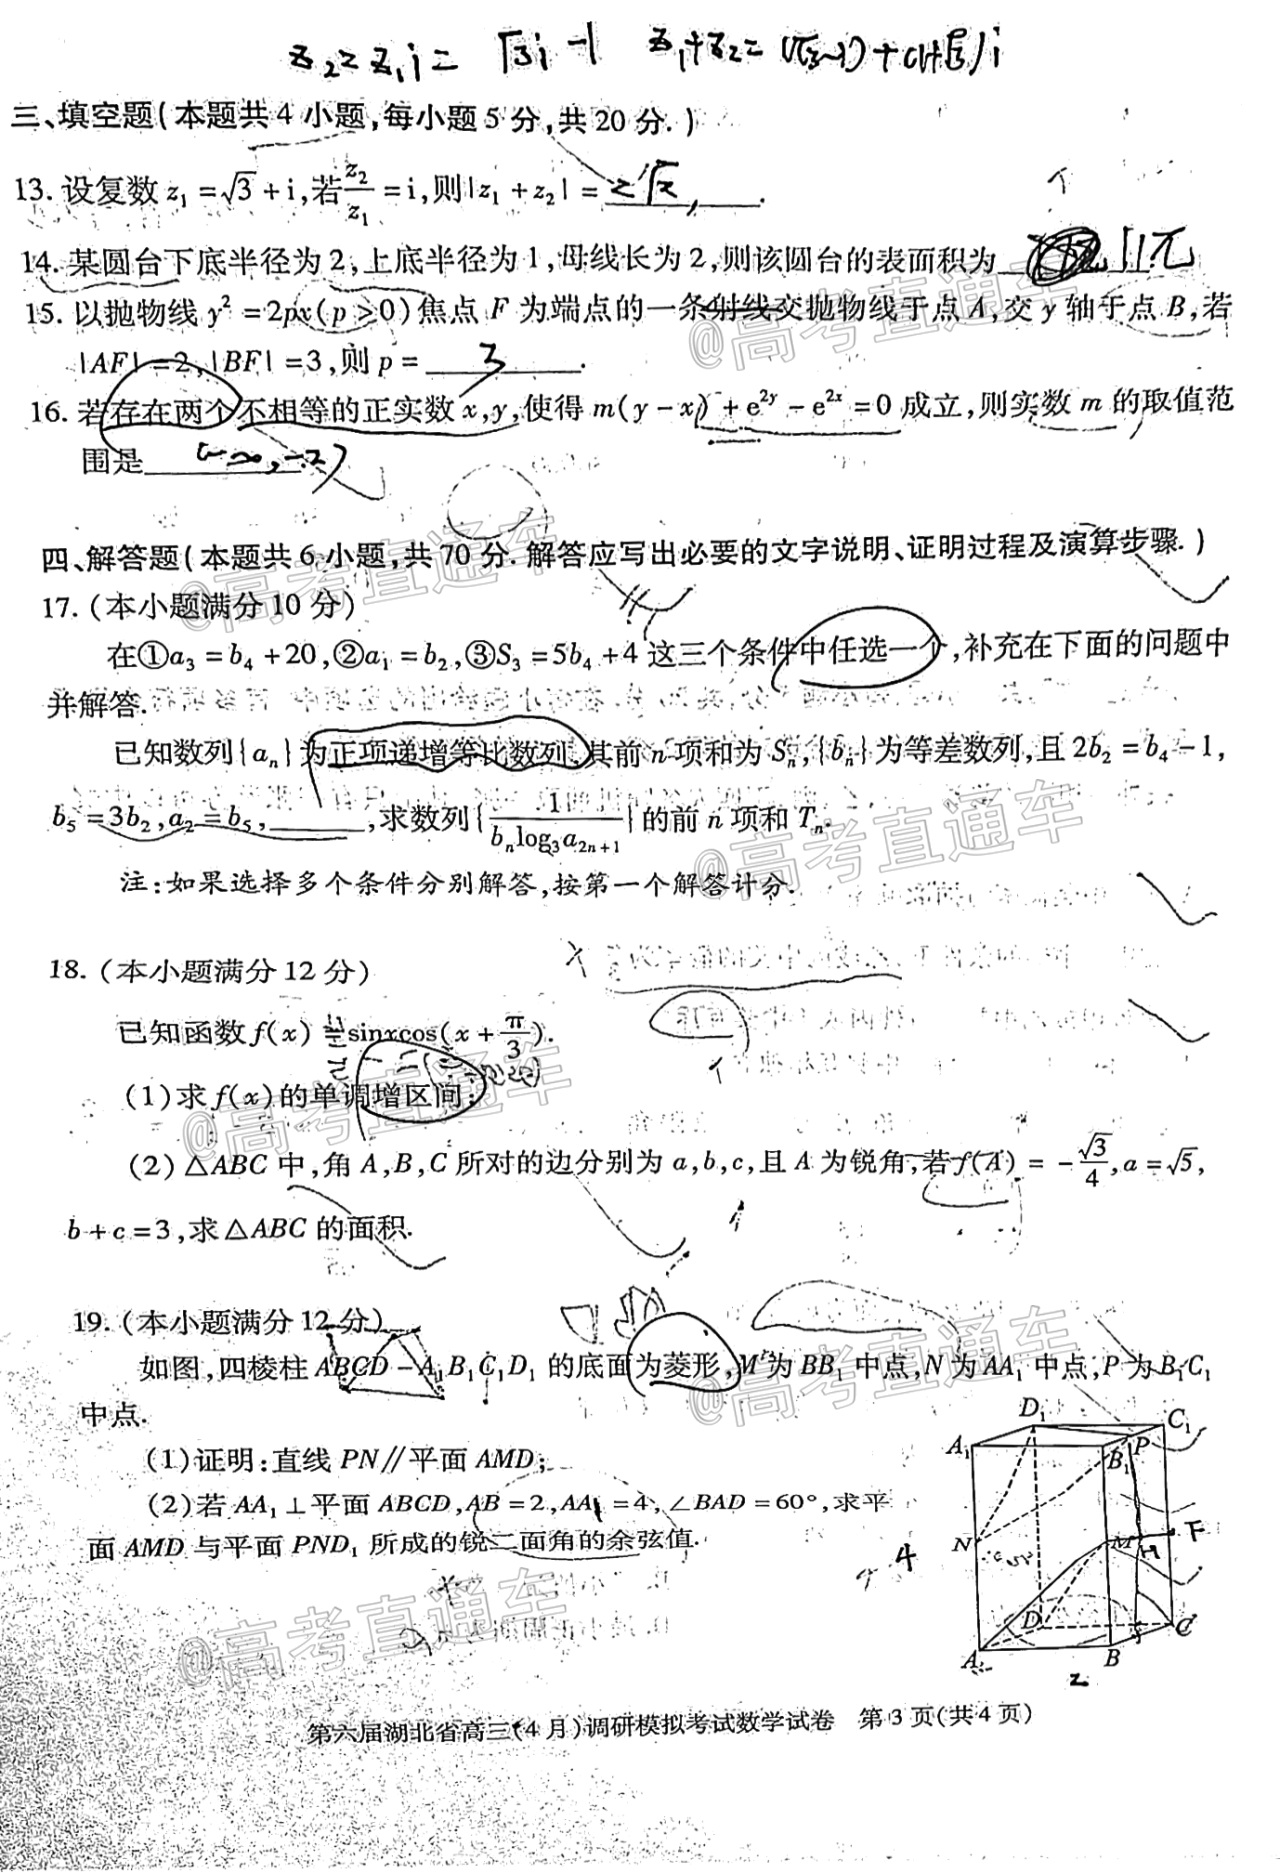 z₂=z₁i= √3i-1 z₁+z₂=(√3-1)+(1+√3)i
三、填空题(本题共4小题,每小题5分,共20分.)
13. 设复数 z₁=√3+i,若 z₂/z₁=i,则|z₁+z₂|= 2√2 .
14. 某圆台下底半径为2,上底半径为1,母线长为2,则该圆台的表面积为 11π
15. 以抛物线 y²=2px(p>0)焦点 F 为端点的一条射线交抛物线于点 A,交 y 轴于点 B,若
|AF|=2,|BF|=3,则 p= 3 .
16. 若存在两个不相等的正实数 x,y,使得 m(y-x)+e^{2y}-e^{2x}=0 成立,则实数 m 的取值范
围是 (-∞,-2)
四、解答题(本题共6小题,共70分.解答应写出必要的文字说明、证明过程及演算步骤.)
17. (本小题满分10分)
在①a₃=b₄+20,②a₁=b₂,③S₃=5b₄+4 这三个条件中任选一个,补充在下面的问题中
并解答.
已知数列{aₙ}为正项递增等比数列,其前 n 项和为 Sₙ,{bₙ}为等差数列,且 2b₂=b₄-1,
b₅=3b₂,a₂=b₅,______,求数列{1/(bₙlog₃a₂ₙ₊₁)}的前 n 项和 Tₙ.
注:如果选择多个条件分别解答,按第一个解答计分.
18. (本小题满分12分)
已知函数 f(x)=sinxcos(x+π/3).
(1)求 f(x)的单调增区间;
(2)△ABC 中,角 A,B,C 所对的边分别为 a,b,c,且 A 为锐角,若 f(A)=-√3/4,a=√5,
b+c=3,求△ABC 的面积.
19. (本小题满分12分)
如图,四棱柱 ABCD-A₁B₁C₁D₁ 的底面为菱形,M 为 BB₁ 中点,N 为 AA₁ 中点,P 为 B₁C₁
中点.
(1)证明:直线 PN∥平面 AMD;
(2)若 AA₁⊥平面 ABCD,AB=2,AA₁=4,∠BAD=60°,求平
面 AMD 与平面 PND₁ 所成的锐二面角的余弦值.
D₁ C₁
A₁ B₁ P
N M H F
4
D C
A B
2
第六届湖北省高三(4月)调研模拟考试数学试卷 第3页(共4页)
@高考直通车
@高考直通车
@高考直通车
@高考直通车
@高考直通车
@高考直通车